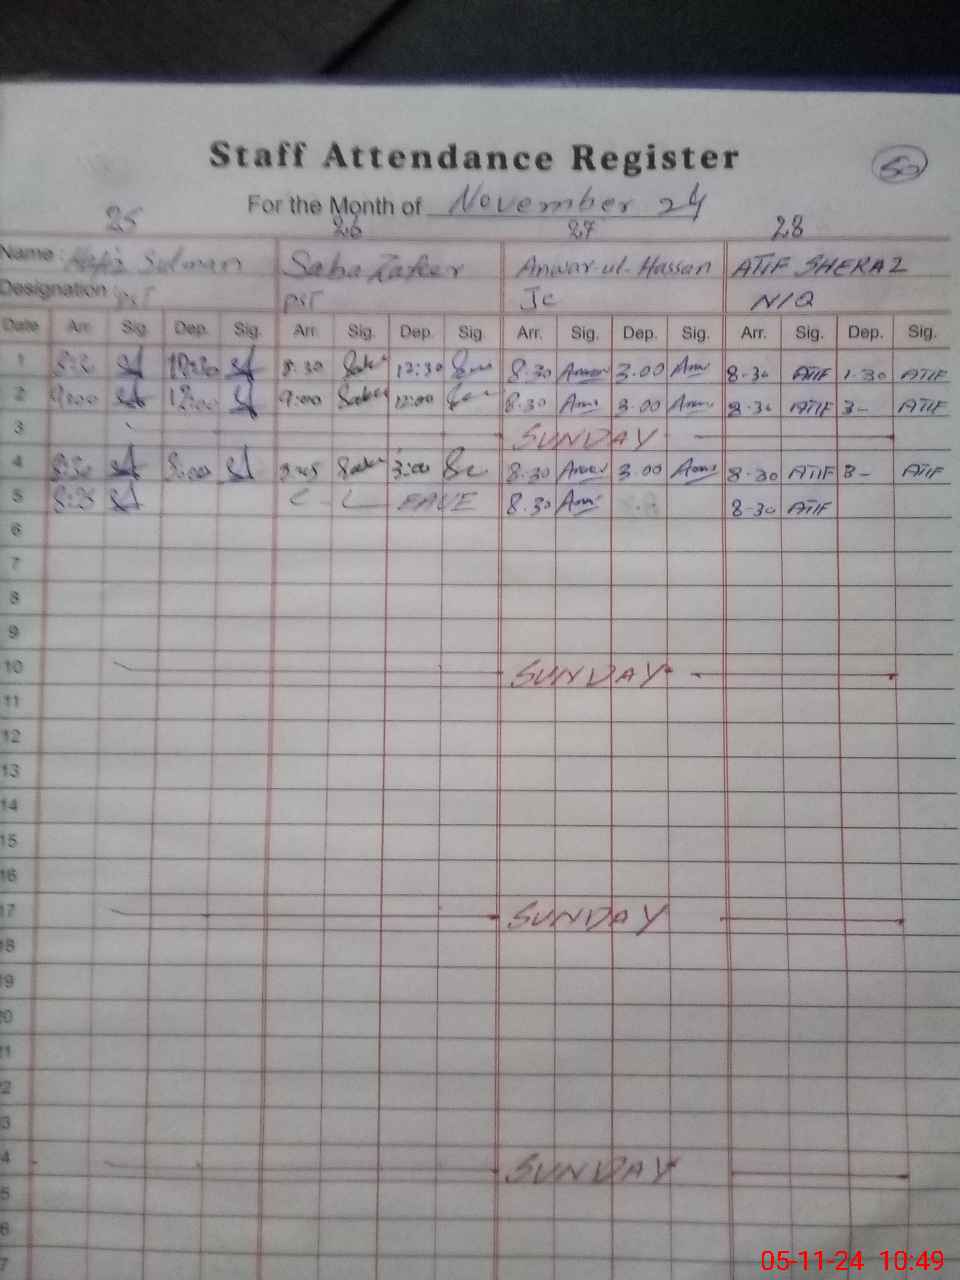 Staff Attendance Register
50
For the Month of November 24
25 26 27 28
Name: Hafiz Salman Saba Zafeer Anwar-ul-Hassan ATIF SHERAZ
Designation PST PST JC N/Q
Date Arr. Sig. Dep. Sig. Arr. Sig. Dep. Sig. Arr. Sig. Dep. Sig. Arr. Sig. Dep. Sig.
1 8:30 12:30 8:30 Saba 12:30 8.30 Anwar 3.00 Anw 8-30 ATIF 1-30 ATIF
2 9:00 12:00 9:00 Saba 12:00 8.30 Anw 3.00 Anw 8-30 ATIF 3- ATIF
3 SUNDAY
4 8:30 3:00 Saba 3:00 8.30 Anwar 3.00 Anw 8-30 ATIF 3- ATIF
5 8:25 L EAVE 8.30 Anw 8-30 ATIF
6
7
8
9
10 SUNDAY
11
12
13
14
15
16
17 SUNDAY
18
19
0
1
2
3
4 SUNDAY
5
6
7
05-11-24 10:49